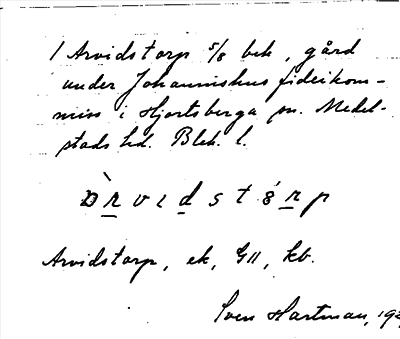 1 Arvidstorp 5/8 bek, gård
under Johannishus fideikom-
miss i Hjortsberga sn. Medel-
stads hd. Blek. l.
Arvidstorp, ek, G11, kb.
Sven Hartman, 192